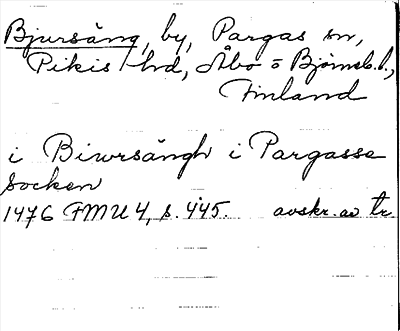 Bjursäng, by, Pargas sn,
Pikis hd, Åbo o Björneb. l.,
Finland
i Biwrsängh i Pargasse
socken
1476 FMU 4, s. 445. avskr. av tr.